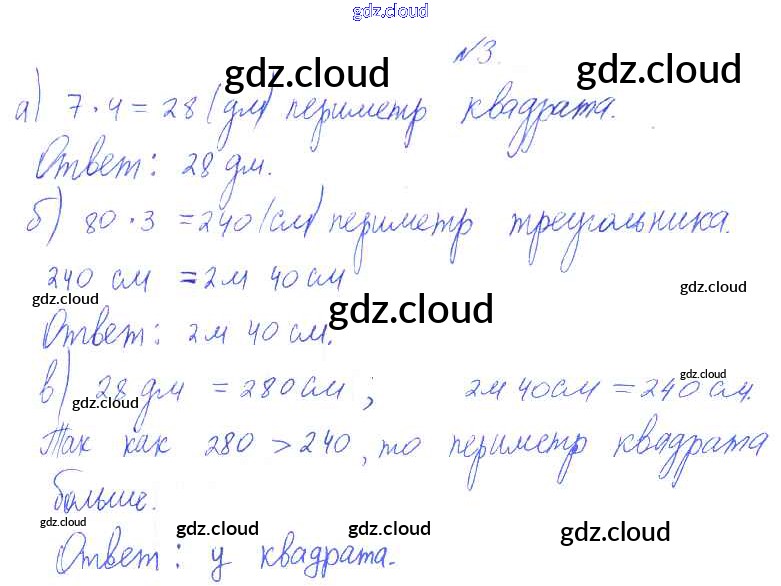 gdz.cloud
№3.
gdz.cloud gdz.cloud
а) 7 · 4 = 28 (дм) периметр квадрата.
Ответ: 28 дм.
б) 80 · 3 = 240 (см) периметр треугольника.
240 см = 2м 40 см
gdz.cloud gdz.cloud gdz.cloud
Ответ: 2м 40 см.
в) 28 дм = 280 см ; 2м 40см = 240 см.
gdz.cloud gdz.cloud
Так как 280 > 240, то периметр квадрата
больше.
gdz.cloud gdz.cloud gdz.cloud gdz.cloud
Ответ: у квадрата.